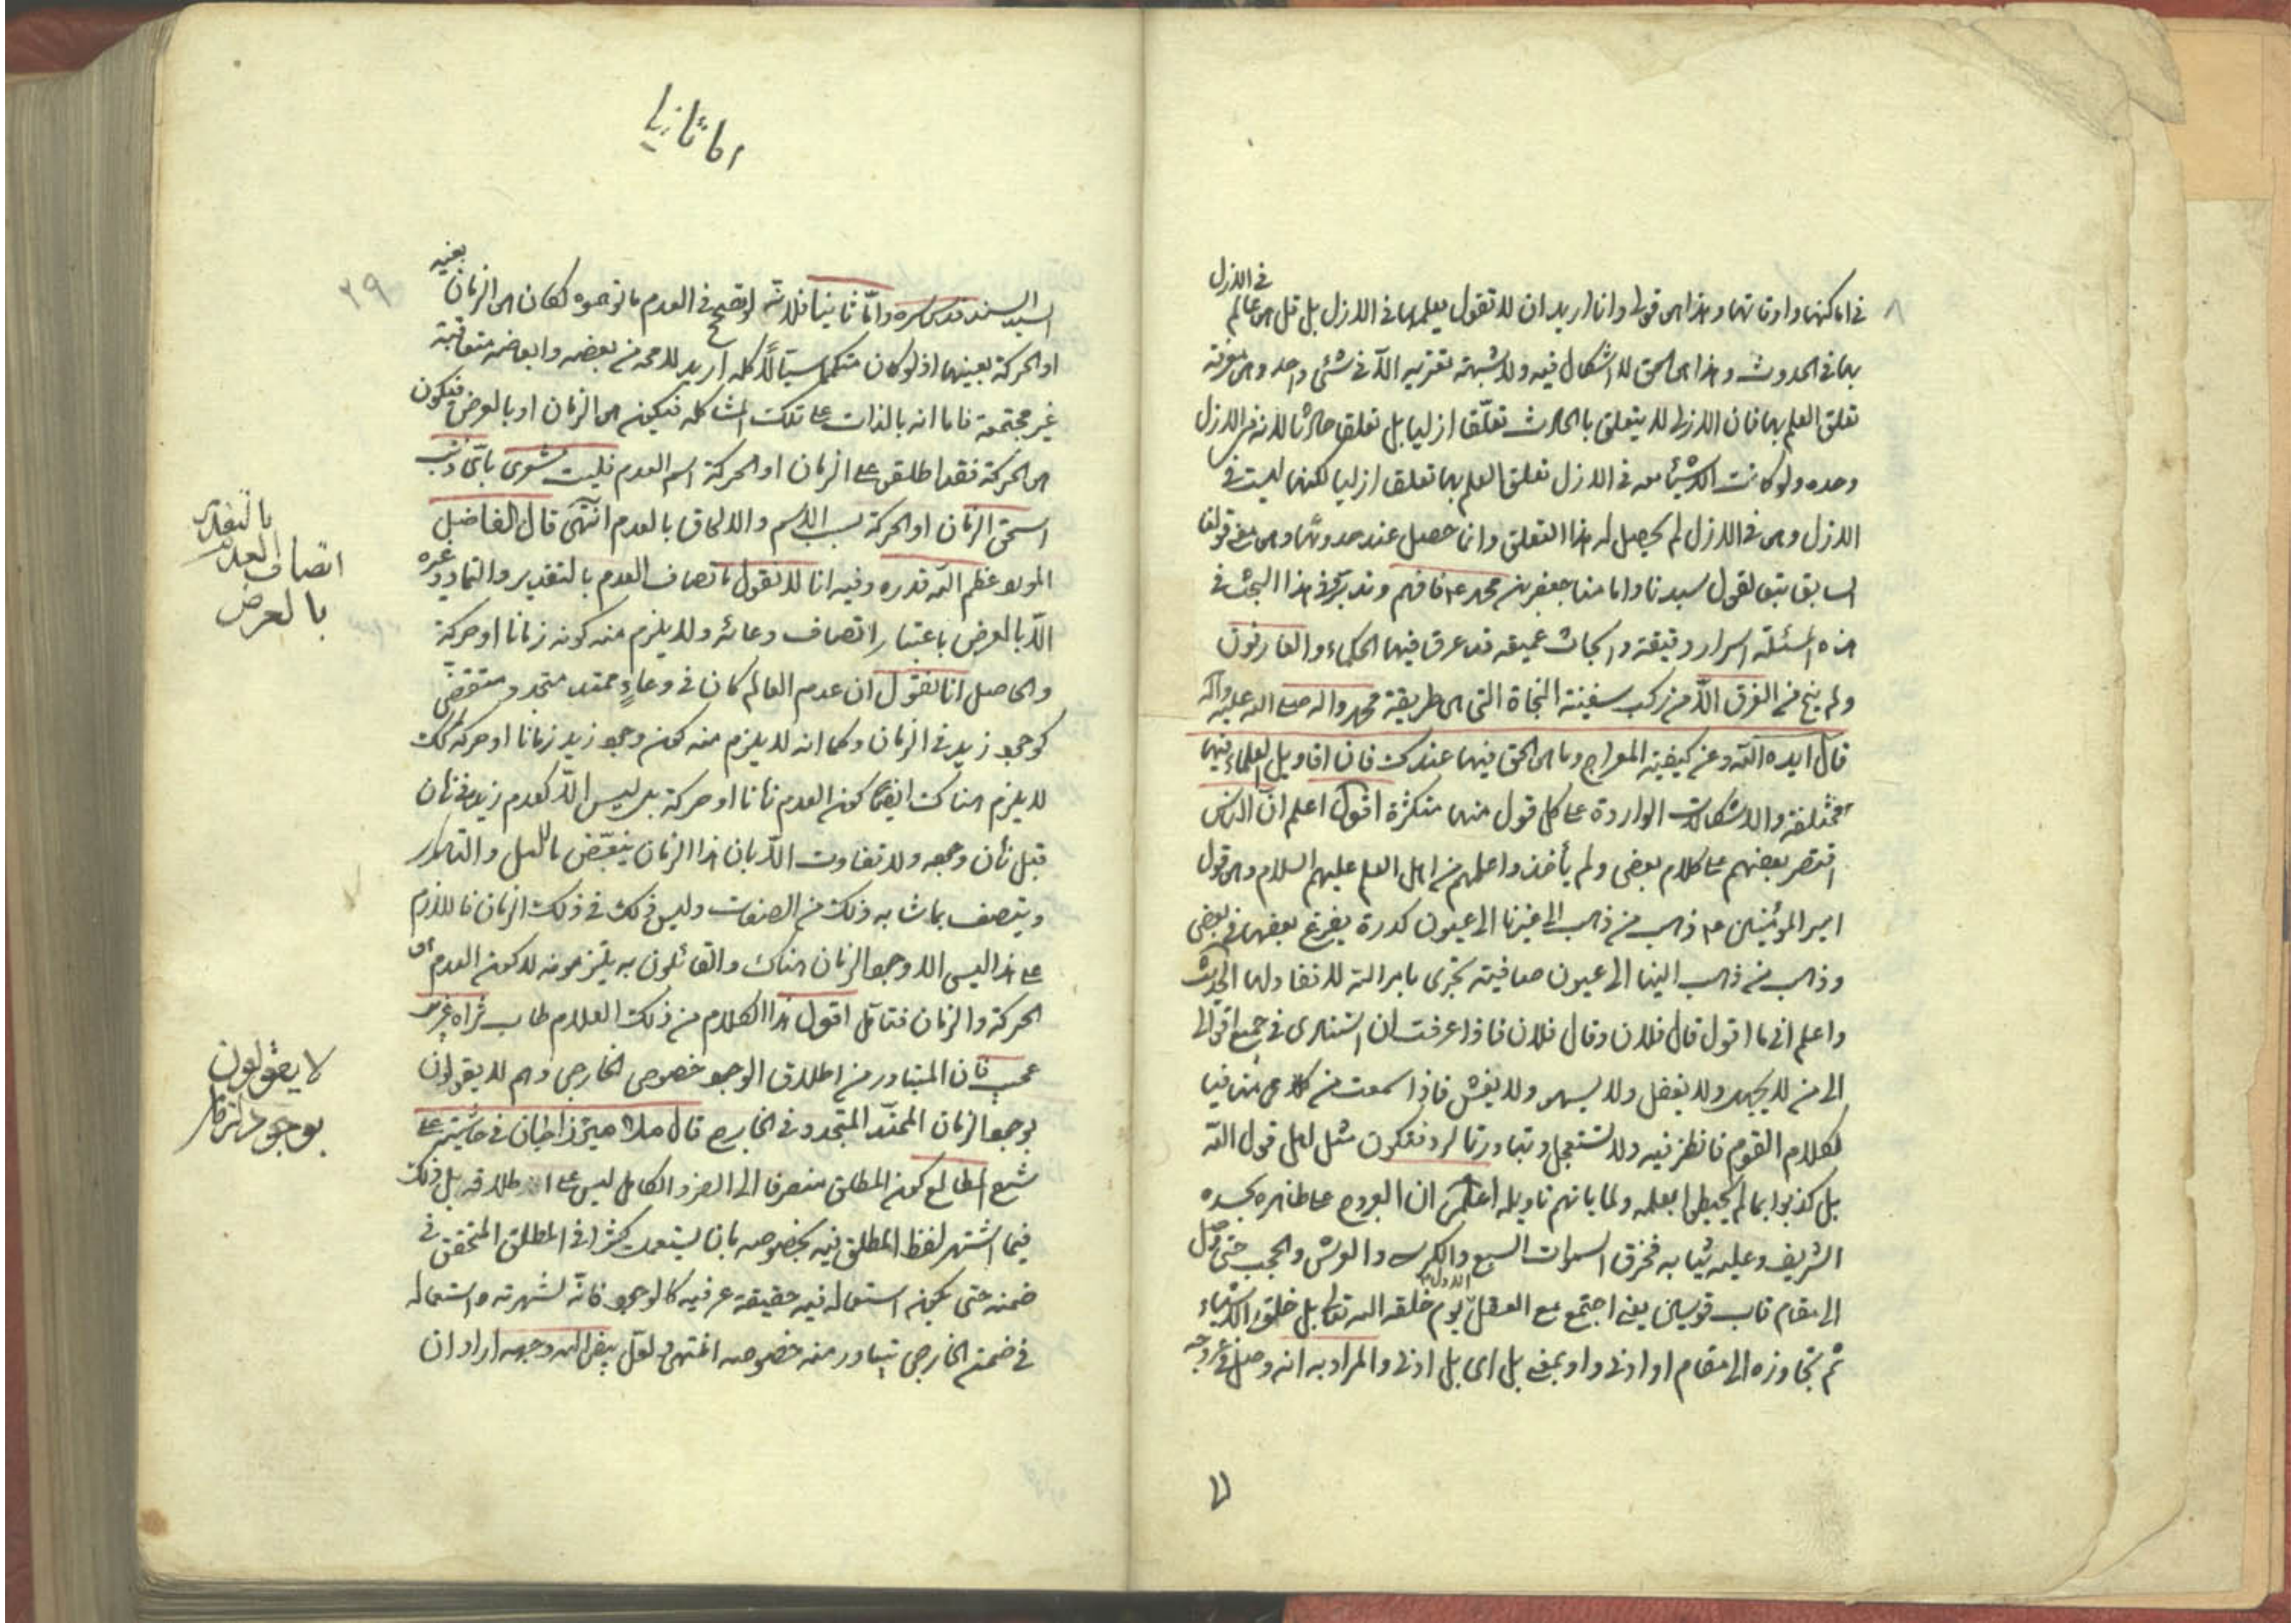 في الازل
في اماكنها واوقاتها وهذا هو قولي وانا اريد ان لا تقول يعلمها في الازل بل قل هو عالم
بها في الحدوث وهذا هو الحق لا اشكال فيه ولا شبهة تعتريه الا في شئي واحد وهو معرفة
تعلق العلم بها فان الازل لا يتعلق بالحادث تعلقا ازليا بل تعلق حادثا لانه في الازل
وحده ولو كانت الاشياء معه في الازل تعلق العلم بها تعلقا ازليا لكنها ليست في
الازل وهو في الازل لم يحصل له هذا التعلق وانما حصل عند حدوثها وهو معنى قولنا
السابق تبعا لقول سيدنا وامامنا جعفر بن محمد ع فافهم وتدبر في هذا البحث في
هذه المسئلة اسرار دقيقة وابحاث عميقه قد غرق فيها الحكماء والعارفون
ولم ينج من الغرق الا من ركب سفينة النجاة التي هي طريقة محمد واله صلى الله عليه وآله
قال ايده الله وعن كيفية المعراج وما هو الحق فيها عندك فان اقاويل العلماء فيها
مختلفة والاشكالات الواردة على كل قول منها متكثرة اقول اعلم ان الناس
اقتصر بعضهم على كلام بعض ولم يأخذوا علمهم من اهل العلم عليهم السلام وهو قول
امير المؤمنين ع ذهب من ذهب الى غيرنا الى عيون كدرة يفرغ بعضها في بعض
وذهب من ذهب الينا الى عيون صافية تجري بامر الله لا نفاد لها الحديث
واعلم اني ما اقول قال فلان وقال فلان فاذا عرفت ان استنادي في جميع اقوالي
الى من لا يجهل ولا يغفل ولا يسهو ولا يغش فاذا سمعت من كلامي منافيا
لكلام القوم فانظر فيه ولا تستعجل وتبادر بالرد فتكون مثل اهل قول الله
بل كذبوا بما لم يحيطوا بعلمه ولما يأتهم تاويله اعلم ان العروج على ظاهره بجسده
الشريف وعليه ثيابه فخرق السموات السبع والكرسي والعرش والحجب حتى وصل
الى مقام قاب قوسين يعني اجتمع مع العقل الاول يوم خلقه الله تعالى بل خلق الاشياء
ثم تجاوزه الى مقام او ادنى واو بمعنى بل اي بل ادنى والمراد به انه وصل في عروجه
اما ثانيا
٢٩
بعينه
السيد السند قدس سره واما ثانيا فلانه لو صح في العدم ما توهموه لكان هو الزمان
او الحركة بعينهما اذ لو كان متكمما سيالا كله اريد لا محه من بعضه وابعاضه متعاقبة
غير مجتمعة فاما انه بالذات على تلك المشاكله فيكون هو الزمان او بالعرض فيكون
هو الحركة فقد اطلقوا على الزمان او الحركة اسم العدم فليت شعري باي ذنب
استحق الزمان او الحركة سلب الاسم والالحاق بالعدم انتهى قال الفاضل
المولا عظم الله قدره وفيه انا لا نقول باتصاف العدم بالتقدير والتمادي وغيره
الا بالعرض باعتبار اتصاف وعائه ولا يلزم منه كونه زمانا او حركة
والحاصل انا نقول ان عدم العالم كان في وعاء ممتد متجدد متقضي
كوجود زيد في الزمان وكما انه لا يلزم منه كون وجود زيد زمانا او حركة كك
لا يلزم هناك ايضا كون العدم زمانا او حركة بل ليس الا كعدم زيد في زمان
قبل زمان وجوده ولا تفاوت الا بان هذا الزمان يتبعض بالليل والنهار
ويتصف بما شابه ذلك من الصفات وليس ذلك في ذلك الزمان فاللازم
على هذا ليس الا وجود الزمان هناك والقائلون به يلتزمونه لا كون العدم هو
الحركة والزمان فتامل اقول هذا الكلام من ذلك العلام طاب ثراه غريب
عجيب فان المتبادر من اطلاق الوجود خصوص الخارجي وهم لا يقولون
بوجود الزمان الممتد المتجدد في الخارج قال ملا ميرزا جان في حاشيته على
شرح المطالع كون المطلق منصرفا الى الفرد الكامل ليس على اطلاقه بل ذلك
فيما اشتهر لفظ المطلق فيه بخصوصه بان يستعمل كثيرا في المطلق المتحقق في
ضمنه حتى يكون استعماله فيه حقيقة عرفية كالوجود فانه لشهرته واستعماله
في ضمن الخارجي يتبادر منه خصوصه انتهى ولعل بيض الله وجهه اراد ان
بالتقدير
اتصاف العدم
بالعرض
لا يقولون
بوجود الزمان